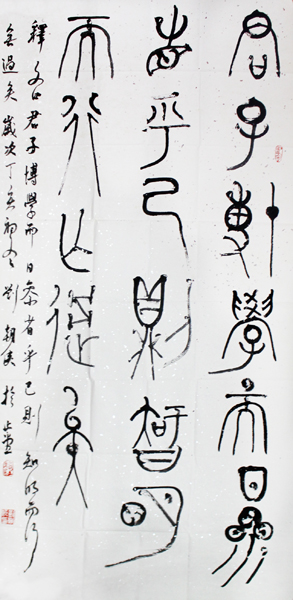 君子博學而日參
者乎己則智明
而行亡過矣
釋文曰君子博學而日參者乎己則知明而行
無過矣歲次丁亥初冬劉朝侯於止堂